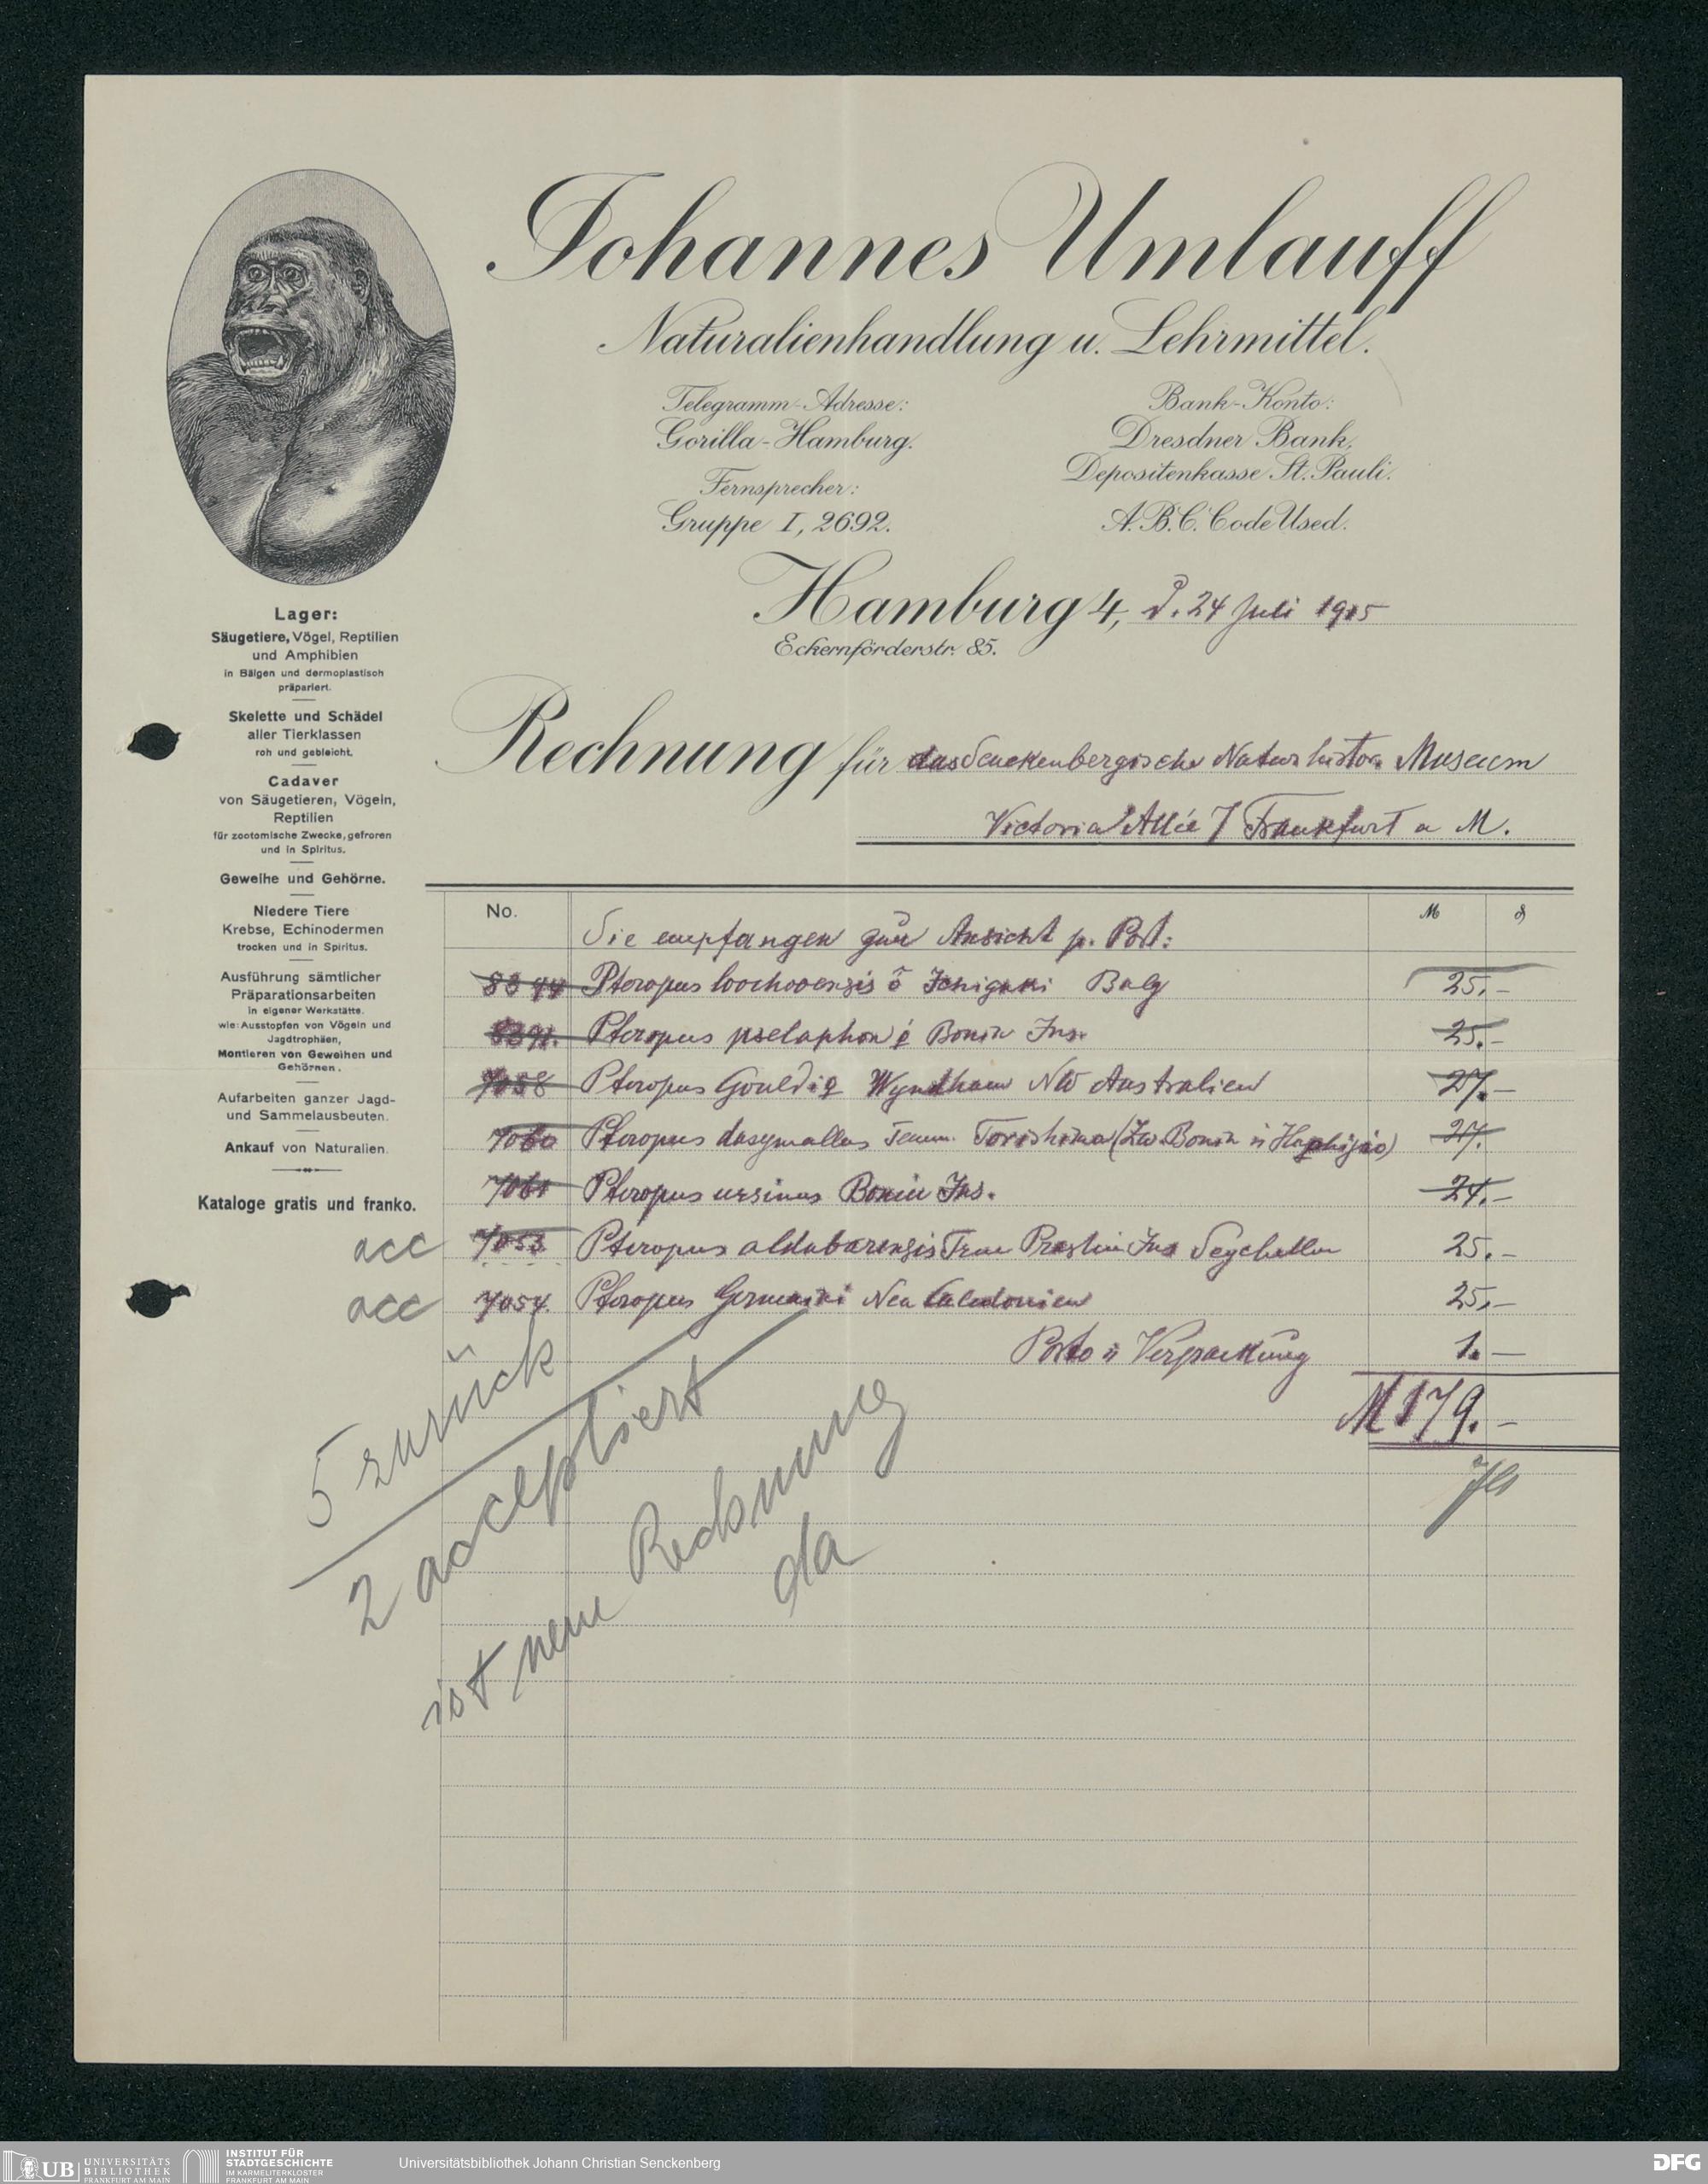 Johannes Umlauff
Naturalienhandlung u. Lehrmittel.
Telegramm-Adresse:
Gorilla-Hamburg.
Fernsprecher:
Gruppe I, 2692.
Bank-Konto:
Dresdner Bank,
Depositenkasse St. Pauli.
A.B.C. Code Used.
Hamburg 4, d. 24 Juli 1915
Eckernförderstr. 85.
Lager:
Säugetiere, Vögel, Reptilien
und Amphibien
in Bälgen und dermoplastisch
präpariert.
Skelette und Schädel
aller Tierklassen
roh und gebleicht.
Cadaver
von Säugetieren, Vögeln,
Reptilien
für zootomische Zwecke, gefroren
und in Spiritus.
Geweihe und Gehörne.
Niedere Tiere
Krebse, Echinodermen
trocken und in Spiritus.
Ausführung sämtlicher
Präparationsarbeiten
in eigener Werkstätte.
wie: Ausstopfen von Vögeln und
Jagdtrophäen,
Montieren von Geweihen und
Gehörnen.
Aufarbeiten ganzer Jagd-
und Sammelausbeuten.
Ankauf von Naturalien.
Kataloge gratis und franko.
Rechnung für das Senckenbergische Naturhistor. Museum
Victoria Allée 7 Frankfurt a M.
No. M ₰
Sie empfangen zur Ansicht p. Post:
8344 Pteropus loochooensis Ischigaki Balg 25.-
Pteropus pselaphon Bonin Ins. 25.-
7058 Pteropus Gouldi ♀ Wyndham NW Australien 27.-
7060 Pteropus dasymallus Temm. Torishima (Zw. Bonin ü ) 27.
7061 Pteropus ursinus Bonin Ins. 24.-
acc 7053 Pteropus aldabarensis True Praslin Ins Seychellen 25.-
acc 7054. Pteropus Germaini Neu Caledonien 25.-
Porto ü Verpackung 1.-
M 179.-
5 zurück
2 acceptiert
ist neue Rechnung
da
UB UNIVERSITÄTS
BIBLIOTHEK
FRANKFURT AM MAIN
INSTITUT FÜR
STADTGESCHICHTE
IM KARMELITERKLOSTER
FRANKFURT AM MAIN
Universitätsbibliothek Johann Christian Senckenberg
DFG